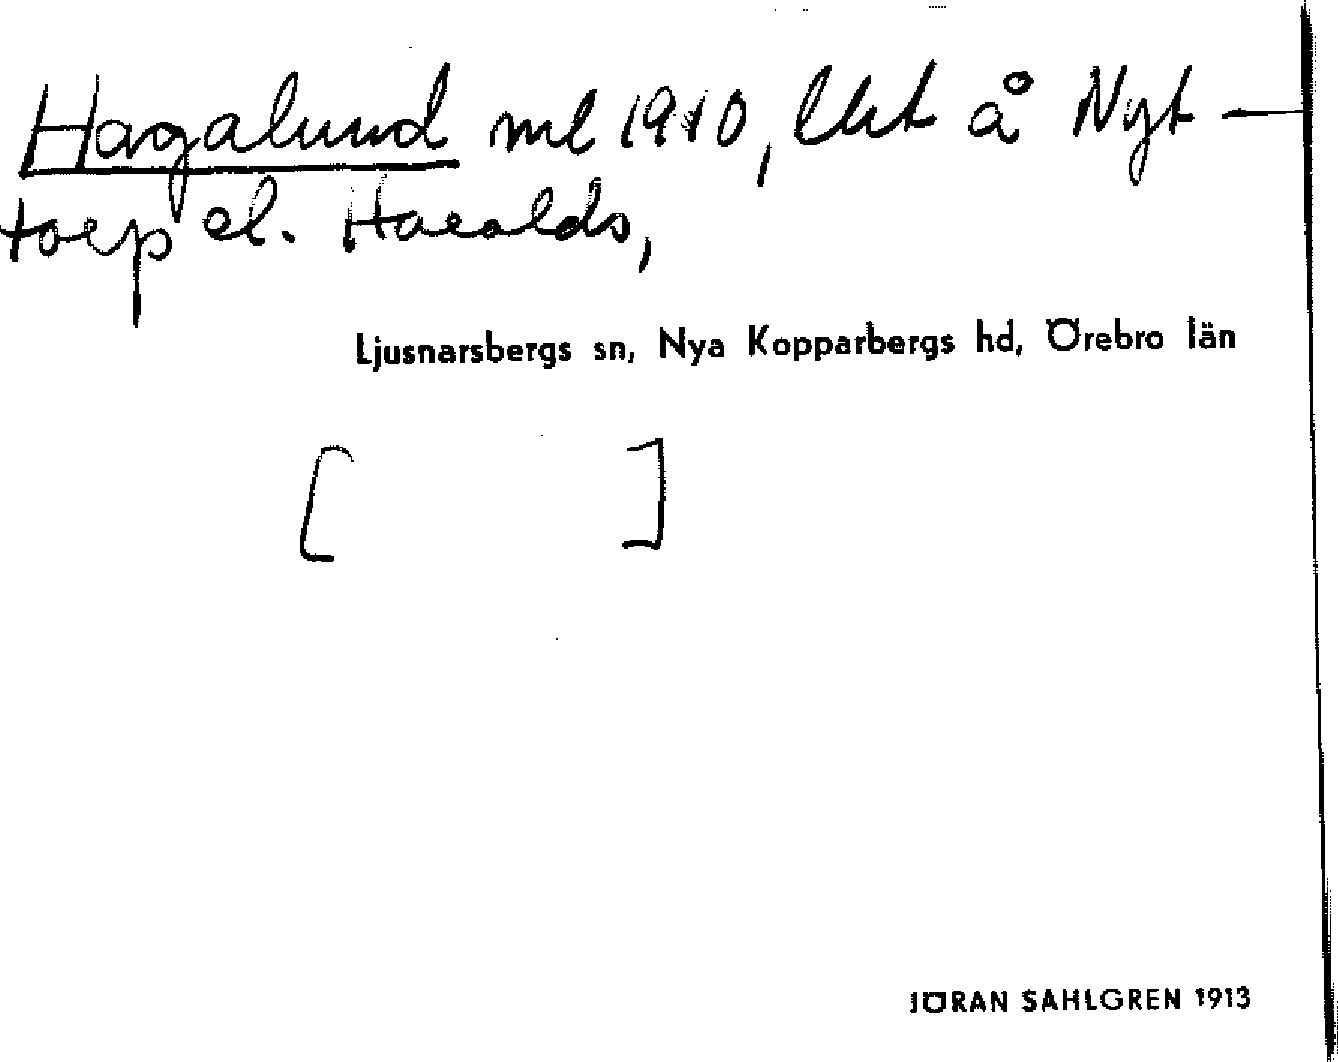 Hagalund ml 1910, lht å Nyt-
torp el. Haralds,
Ljusnarsbergs sn, Nya Kopparbergs hd, Örebro län
[ ]
JÖRAN SAHLGREN 1913